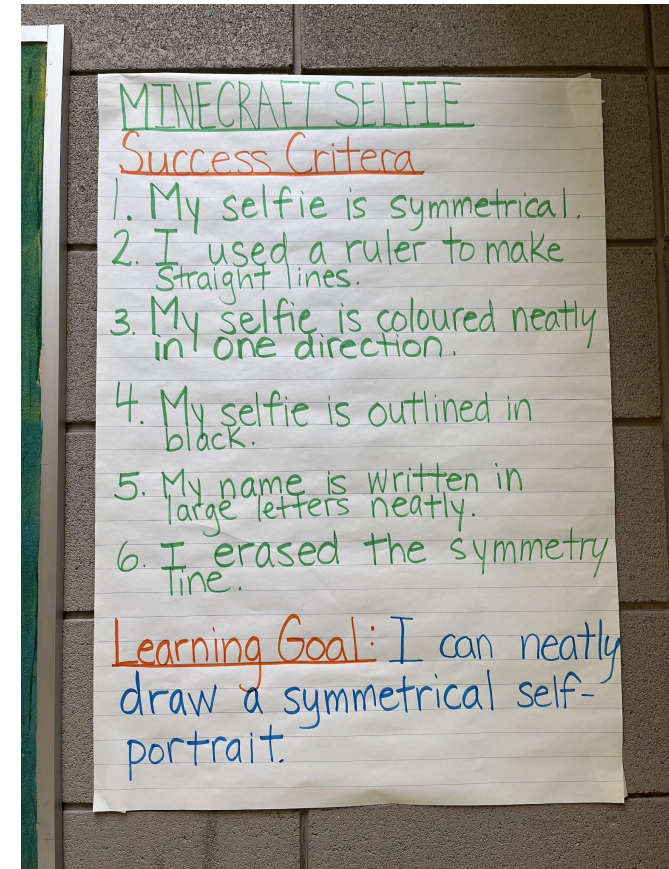 MINECRAFT SELFIE
Success Critera
1. My selfie is symmetrical.
2. I used a ruler to make
straight lines.
3. My selfie is coloured neatly
in one direction.
4. My selfie is outlined in
black.
5. My name is written in
large letters neatly.
6. I erased the symmetry
line.
Learning Goal: I can neatly
draw a symmetrical self-
portrait.